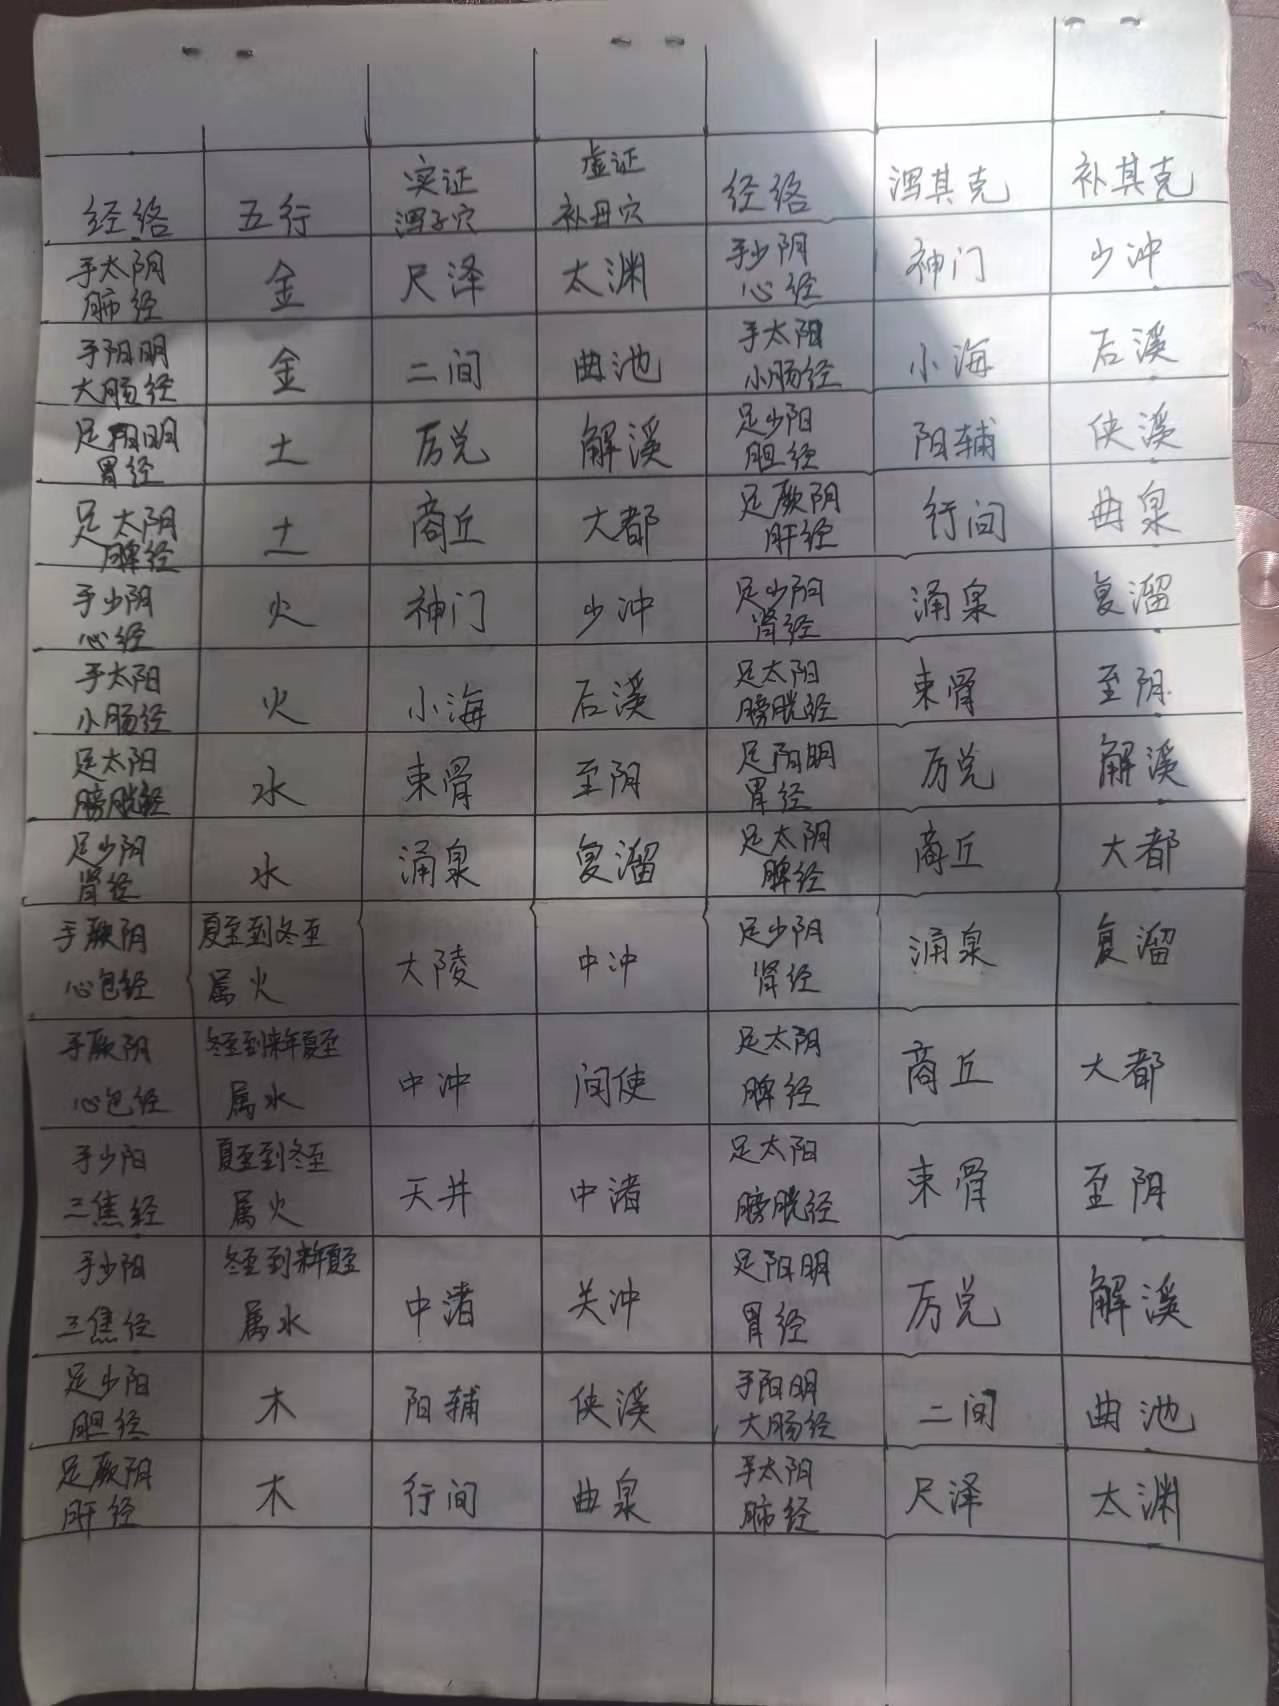 经络 五行 实证 泻子穴 虚证 补母穴 经络 泻其克 补其克
手太阴 肺经 金 尺泽 太渊 手少阴 心经 神门 少冲
手阳明 大肠经 金 二间 曲池 手太阳 小肠经 小海 后溪
足阳明 胃经 土 厉兑 解溪 足少阳 胆经 阳辅 侠溪
足太阴 脾经 土 商丘 大都 足厥阴 肝经 行间 曲泉
手少阴 心经 火 神门 少冲 足少阴 肾经 涌泉 复溜
手太阳 小肠经 火 小海 后溪 足太阳 膀胱经 束骨 至阴
足太阳 膀胱经 水 束骨 至阴 足阳明 胃经 厉兑 解溪
足少阴 肾经 水 涌泉 复溜 足太阴 脾经 商丘 大都
手厥阴 心包经 夏至到冬至 属火 大陵 中冲 足少阴 肾经 涌泉 复溜
手厥阴 心包经 冬至到来年夏至 属水 中冲 间使 足太阴 脾经 商丘 大都
手少阳 三焦经 夏至到冬至 属火 天井 中渚 足太阳 膀胱经 束骨 至阴
手少阳 三焦经 冬至到来年夏至 属水 中渚 关冲 足阳明 胃经 厉兑 解溪
足少阳 胆经 木 阳辅 侠溪 手阳明 大肠经 二间 曲池
足厥阴 肝经 木 行间 曲泉 手太阴 肺经 尺泽 太渊